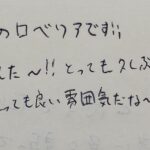 のロベリアです!!
た〜!! とっても久しぶ
っても良い雰囲気だな〜